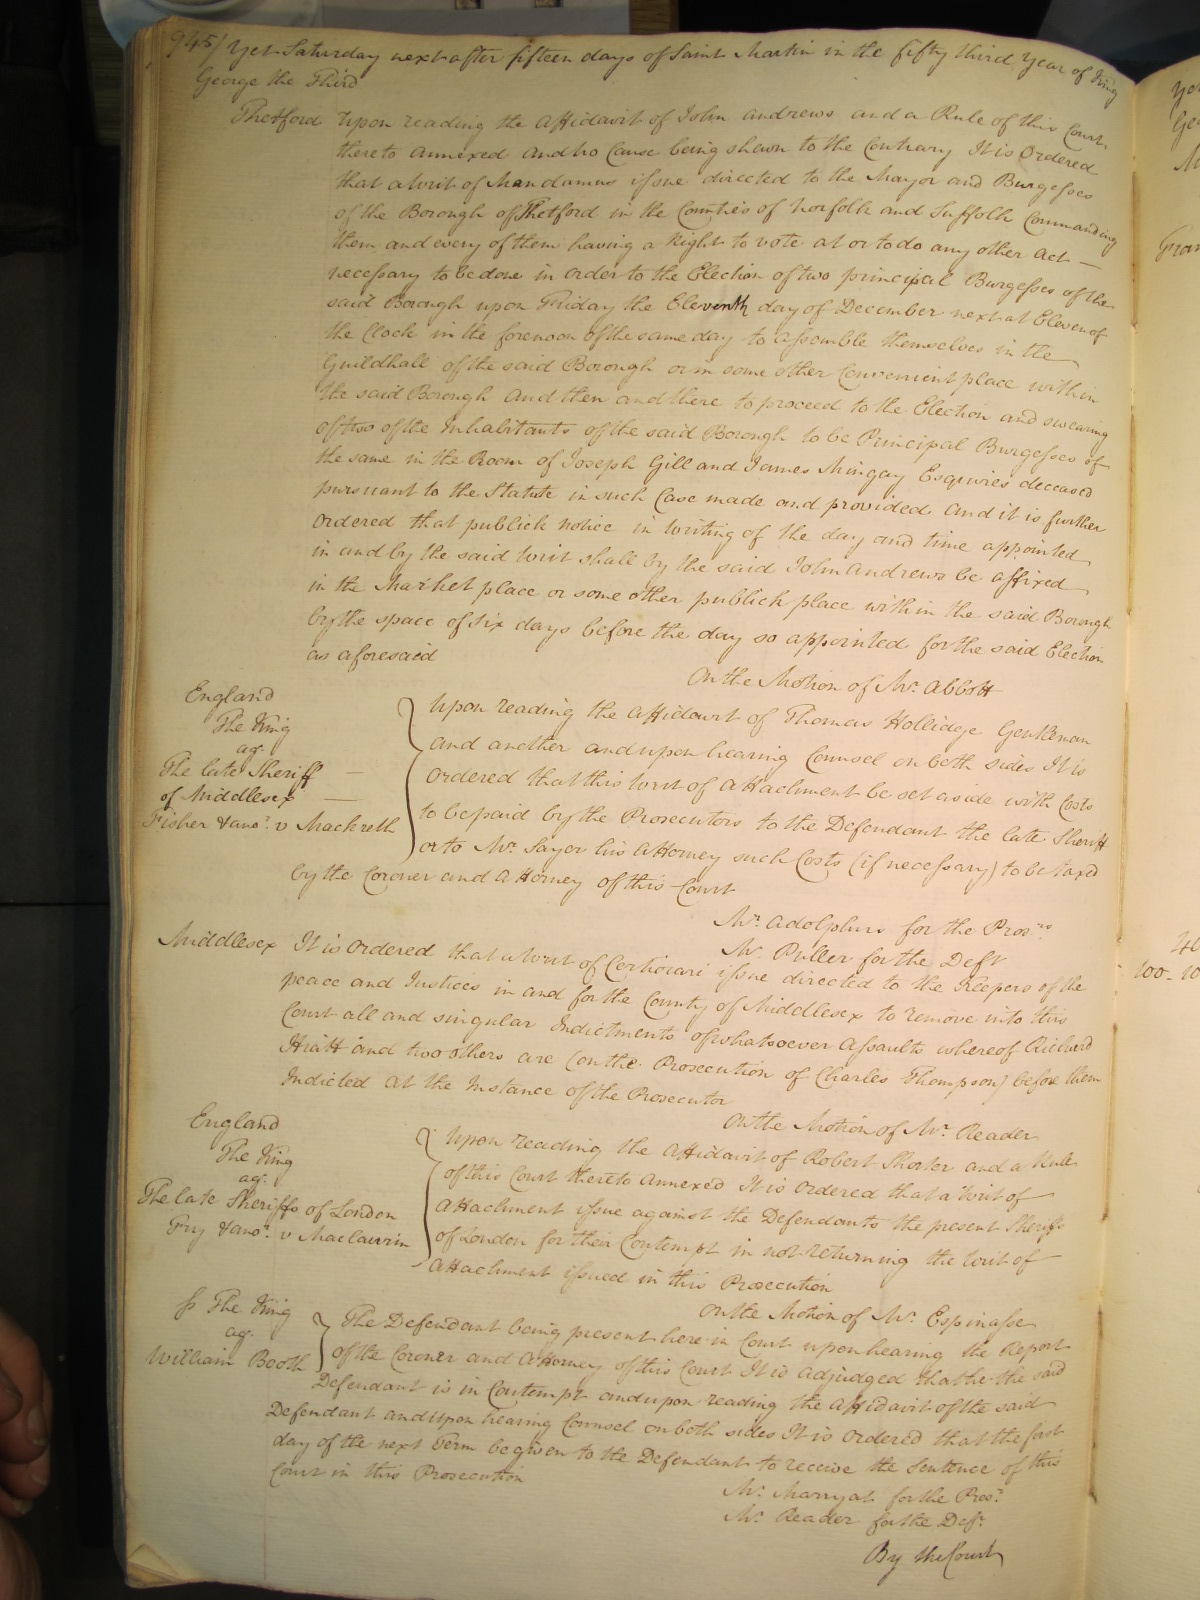 945/ Yet Saturday next after fifteen days of Saint Martin in the fifty third Year of King
George the Third
Thetford Upon reading the Affidavit of John Andrews and a Rule of this Court
thereto Annexed and no Cause being shewn to the Contrary It is Ordered
that a Writ of Mandamus issue directed to the Mayor and Burgesses
of the Borough of Thetford in the Counties of Norfolk and Suffolk Commanding
them and every of them having a Right to vote at or to do any other Act —
necessary to be done in order to the Election of two principal Burgesses of the
said Borough upon Friday the Eleventh day of December next at Eleven of
the Clock in the forenoon of the same day to assemble themselves in the
Guildhall of the said Borough or in some other Convenient place within
the said Borough And then and there to proceed to the Election and swearing
of two of the Inhabitants of the said Borough to be Principal Burgesses of
the same in the Room of Joseph Gill and James Mingay Esquires deceased
pursuant to the Statute in such Case made and provided And it is further
Ordered that publick notice in Writing of the day and time appointed
in and by the said Writ shall by the said John Andrews be affixed
in the Market place or some other publick place within the said Borough
by the space of six days before the day so appointed for the said Election
as aforesaid
On the Motion of Mr. Abbott
England
The King
agt.
The late Sheriff —
of Middlesex —
Fisher & anor. v Mackreth
Upon reading the Affidavit of Thomas Hollidge Gentleman
and another and upon hearing Counsel on both sides It is
Ordered that this Writ of Attachment be set aside with Costs
to be paid by the Prosecutors to the Defendant the late Sheriff
or to Mr. Sayer his Attorney such Costs (if necessary) to be taxed
by the Coroner and Attorney of this Court
Mr. Adolphus for the Prosrs.
Mr. Puller for the Deft
Middlesex It is Ordered that a Writ of Certiorari issue directed to the Keepers of the
peace and Justices in and for the County of Middlesex to remove into this
Court all and singular Indictments of whatsoever Assaults whereof Richard
Hiatt and two others are (on the Prosecution of Charles Thompson) before them
Indicted at the Instance of the Prosecutor
On the Motion of Mr. Reader
England
The King
agt.
The late Sheriffs of London
Fry & anor. v Maclaurin
Upon reading the Affidavit of Robert Shorter and a Rule
of this Court thereto Annexed It is Ordered that a Writ of
Attachment issue against the Defendants the present Sheriffs
of London for their Contempt in not returning the Writ of
Attachment issued in this Prosecution
On the Motion of Mr. Espinasse
The King
agt.
William Booth
The Defendant being present here in Court upon hearing the Report
of the Coroner and Attorney of this Court It is Adjudged that he the said
Defendant is in Contempt and upon reading the Affidavit of the said
Defendant and upon hearing Counsel on both sides It is Ordered that the first
day of the next Term be given to the Defendant to receive the Sentence of this
Court in this Prosecution
Mr. Marryat for the Prosr.
Mr. Reader for the Deft.
By the Court